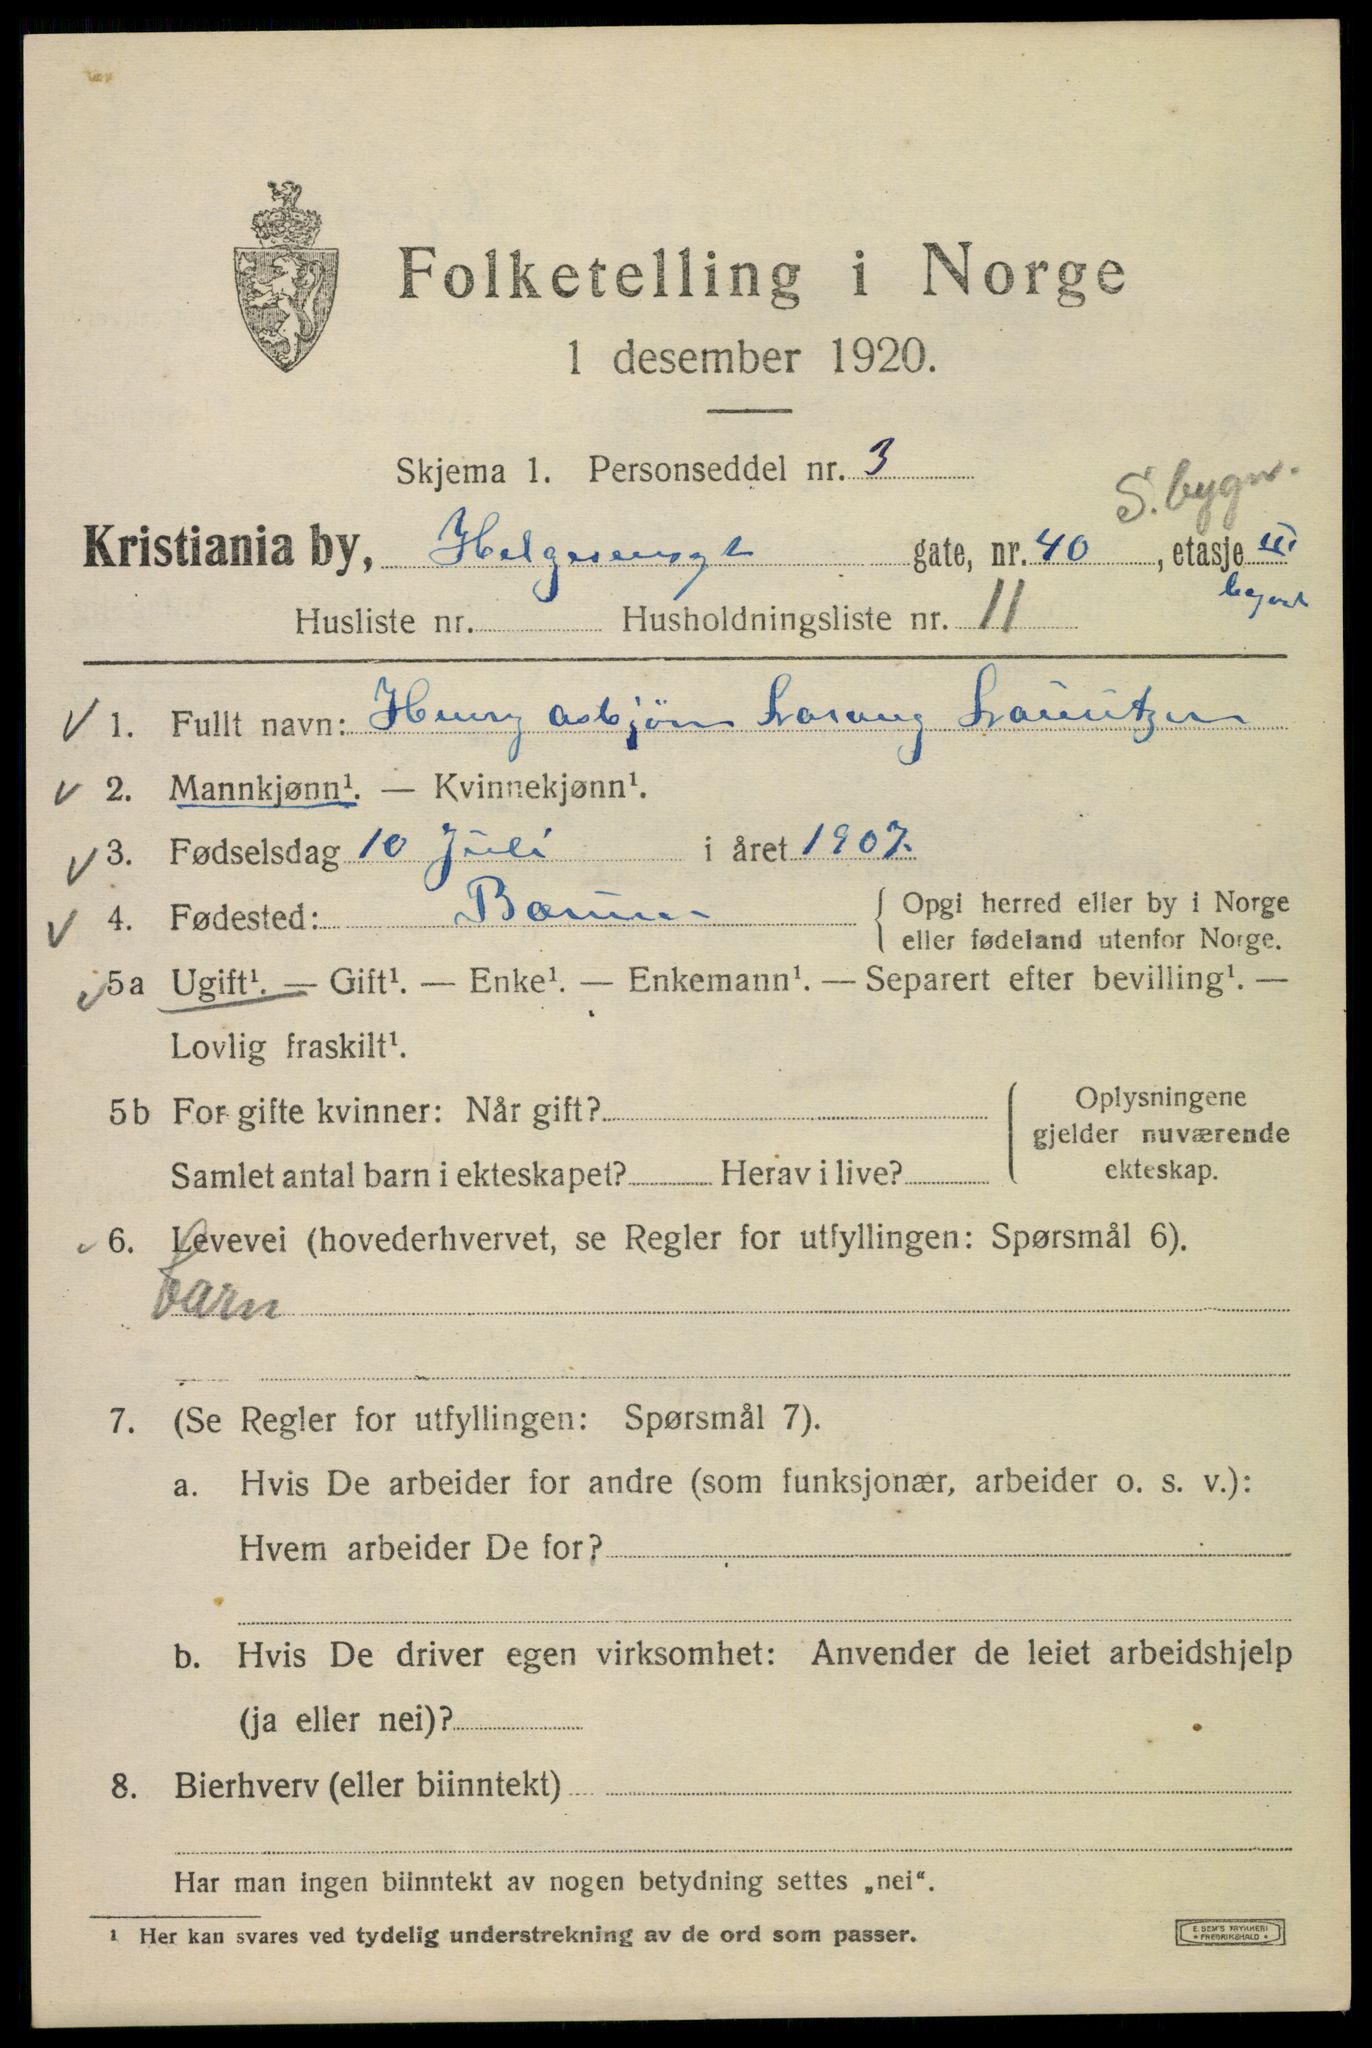 Folketelling i Norge
1 desember 1920.
Skjema 1. Personseddel nr. 3
S. bygn.
Kristiania by, Helgesensgt gate, nr. 40, etasje III
Husliste nr. Husholdningsliste nr. 11
1. Fullt navn: Henry Asbjørn Lauritzen
2. Mannkjønn¹. — Kvinnekjønn¹.
3. Fødselsdag 10 Juli i året 1907.
4. Fødested: Bærum { Opgi herred eller by i Norge
eller fødeland utenfor Norge.
5a Ugift¹. — Gift¹. — Enke¹. — Enkemann¹. — Separert efter bevilling¹. —
Lovlig fraskilt¹.
5b For gifte kvinner: Når gift?
Samlet antal barn i ekteskapet? Herav i live?
Oplysningene
gjelder nuværende
ekteskap.
6. Levevei (hovederhvervet, se Regler for utfyllingen: Spørsmål 6).
barn
7. (Se Regler for utfyllingen: Spørsmål 7).
a. Hvis De arbeider for andre (som funksjonær, arbeider o. s. v.):
Hvem arbeider De for?
b. Hvis De driver egen virksomhet: Anvender de leiet arbeidshjelp
(ja eller nei)?
8. Bierhverv (eller biinntekt)
Har man ingen biinntekt av nogen betydning settes „nei“.
¹ Her kan svares ved tydelig understrekning av de ord som passer.
E. SEM'S TRYKKERI
* FREDRIKSHALD *